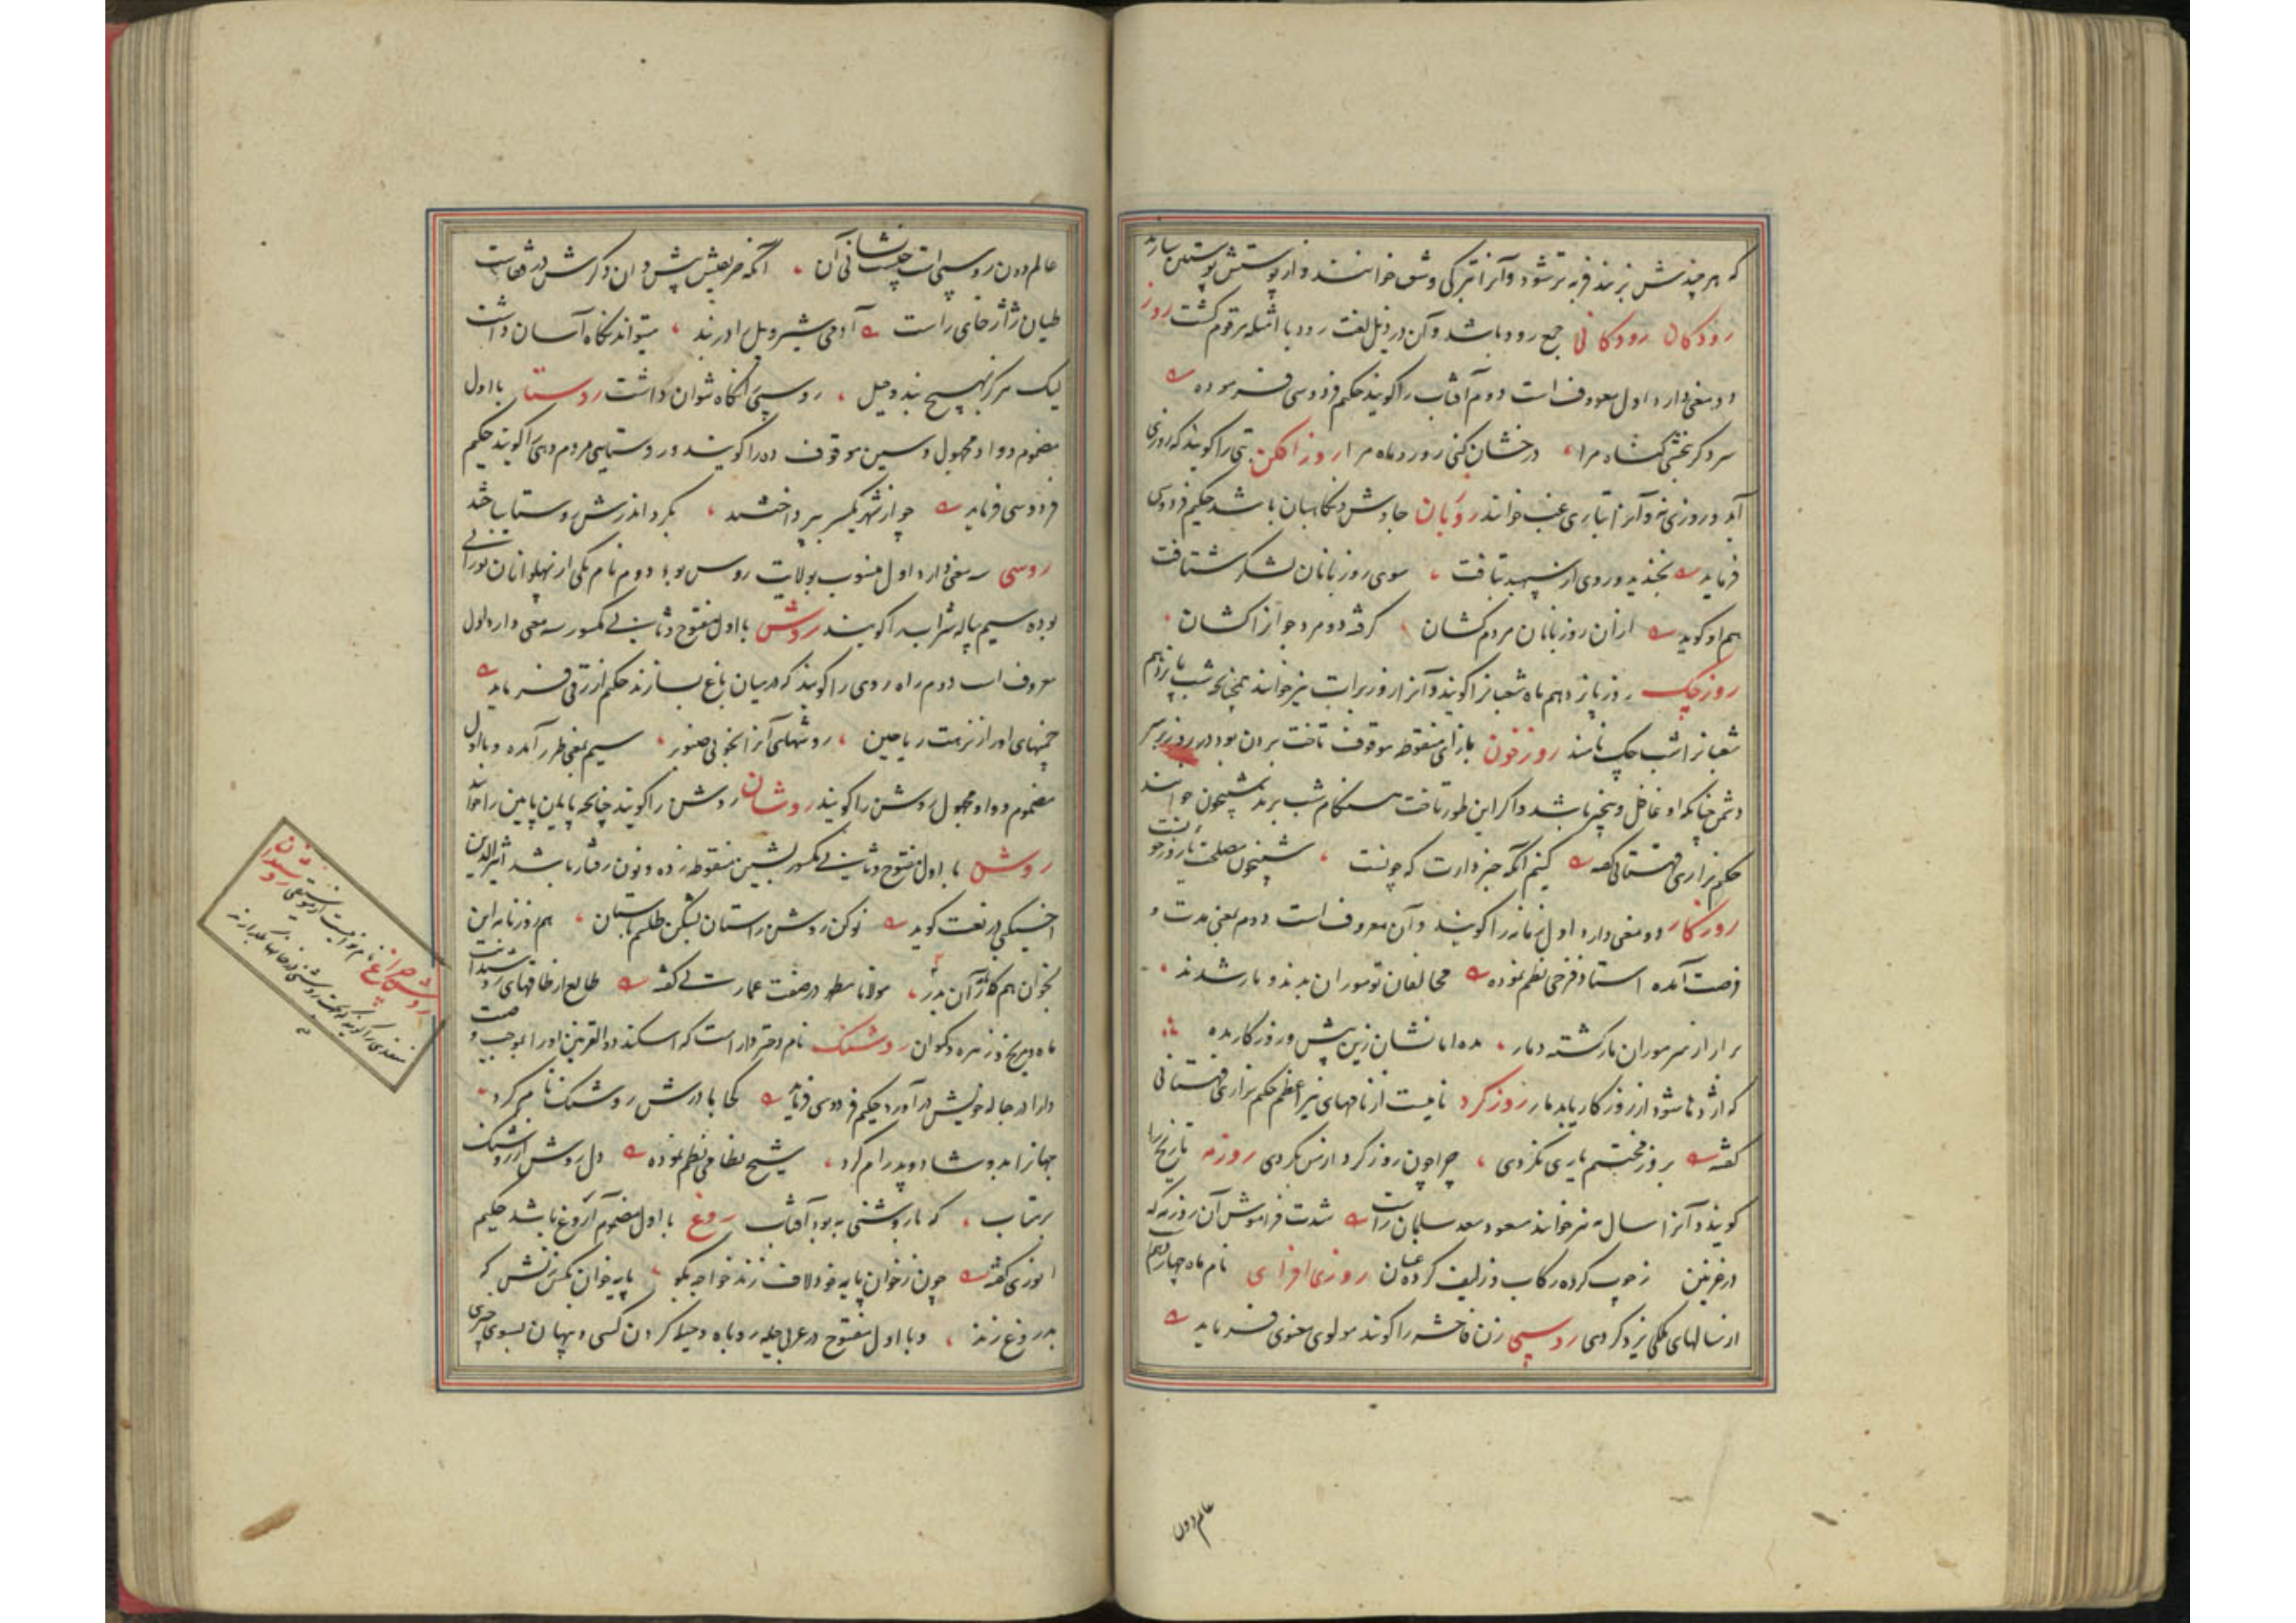 که هر چندش بزنند فربه تر شود و آنرا بترکی وشق خوانند و از پوستش پوستین سازند
رودکان رودکانی جمع رود باشد و آن در ذیل لغت رود با امثله مرقوم گشت روز
دو معنی دارد اول معروف است دوم آفتاب را گویند حکیم فردوسی فرموده
سر و کر بخشی گناه مرا درخشان کنی روز و ماه مرا روز افکن تبی را گویند که روزی
آید و روزی نه و آنرا بتازی غب خوانند روزبان چاوش و نگاهبان باشد حکیم فردوسی
فرماید بخندید و روی از سپهبد بتافت سوی روزبانان لشکر شتافت
هم او گوید از آن روزبانان مردم کشان گرفته دو مرد جوانرا کشان
روز چک روز پانزدهم ماه شعبانرا گویند و آنرا روز برات نیز خوانند همچنانکه شب پانزدهم
شعبانرا شب چک نامند روز خون بازای منقوطه موقوف تاخت بردن بود در روز بر سر
دشمن چنانکه او غافل و بیخبر باشد و اگر این طور تاخت هنگام شب برند شبیخون خوانند
حکیم نزاری قهستانی گفته کنیم آنگه خبر دارت که چونست شبیخون مصلحت یا روز خونست
روزگار دو معنی دارد اول زمانه را گویند و آن معروف است دوم بمعنی مدت و
فرصت آمده استاد فرخی نظم نموده مخالفان تو موران بدند و مار شدند
برآر از سر موران مار گشته دمار مده امانشان زین پیش و روزگار مده
که اژدها شود ار روزگار یابد مار روز گرد نامیست از نامهای نیر اعظم حکیم نزاری قهستانی
گفته بروز محنتم یاری نکردی چرا چون روز گرد از من بگردی روزمه تاریخ را
گویند و آنرا سال مه نیز خوانند مسعود سعد سلمان راست شدت فراموش آن روزمه که
در غزنین ز چوب کرده رکاب و ز لیف کرده عنان روزی افزای نام ماه چهاردهم
از سالهای ملکی یزدگردی روسپی زن فاحشه را گویند مولوی معنوی فرماید
عالم دون
عالم دون روسپی است چیست نشانی آن آنکه حریفیش پیش و آن دگرش در قفاست
طیان ژاژخای راست آدمی شیر و پیل را در بند میتواند نگاه آسان داشت
لیک هرگز بهیچ بند و حیل روسپی را نگاه نتوان داشت روستا با اول
مضموم و واو مجهول و سین موقوف ده را گویند و روستایی مردم دهی را گویند حکیم
فردوسی فرماید چو از شهر یکسر بپرداختند بگرد اندرش روستا ساختند
روسی سه معنی دارد اول منسوب بولایت روس بود دوم نام یکی از پهلوانان تورانی
بوده سیم پیاله شراب را گویند روش با اول مفتوح و ثانی مکسور سه معنی دارد اول
معروف است دوم راه روی را گویند که در میان باغ بسازند حکیم ازرقی فرماید
چمنهای او را ز نزهت ریاحین روشهای آنرا بخوبی صنوبر سیم بمعنی طرز آمده و با اول
مضموم و واو مجهول روشن را گویند روشان روشن را گویند چنانچه پایان پایین را خوانند
روشن با اول مفتوح و ثانی مکسور بشین منقوطه زده و نون رفتار باشد اثیر الدین
اخسیکتی در نعت گوید نو کن روشن راستان بشکن طلسم باستان هم روزنامه این
بخوان هم کار آن بدر مولانا مطهر در صفت عمارتی گفته طالع از طاقهای روشندانت
ماه و مریخ و زهره و کیوان روشنک نام دختر دارا است که اسکندر ذوالقرنین او را بموجب وصیت
دارا در حباله خویش در آورد حکیم فردوسی فرماید کجا مادرش روشنک نام کرد
جهانرا بدو شاد و پدرام کرد شیخ نظامی نظم نموده دل روشن از روشنک
برتاب که با روشنی به بود آفتاب روغ با اول مضموم آروغ باشد حکیم
انوری گفته چون ز خوان پایه خود لاف زند خواجه بگو پایه خوان بکس ننش که
بدروغ زند و با اول مفتوح در عربی حیله روباه و حیله کردن کسی و پنهان بسوی چیزی
روشندان
روشن چراغ